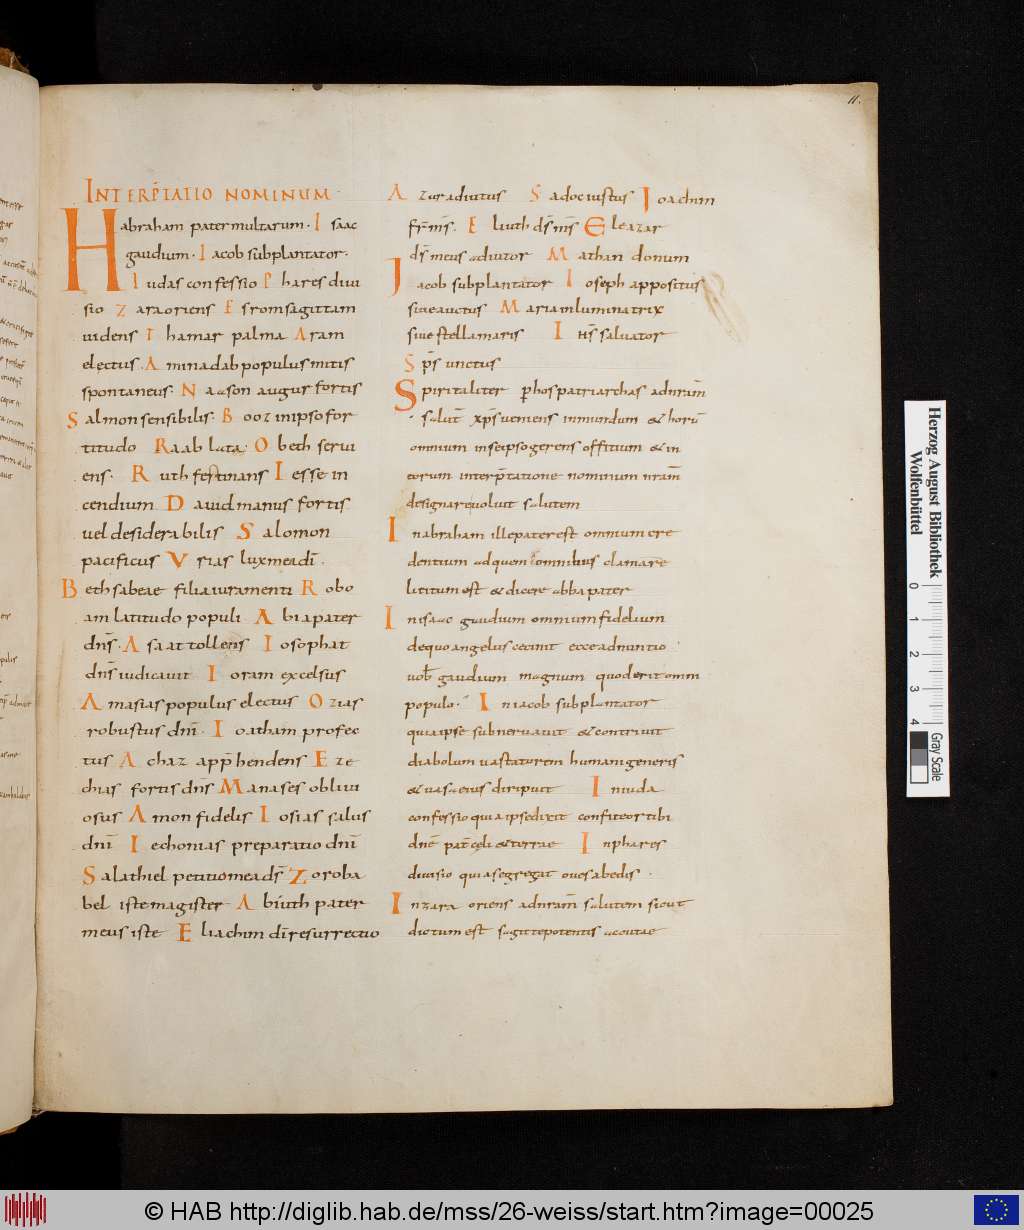 11.
INTERP̄TATIO NOMINUM
Habraham pater multarum. Isaac
gaudium. Iacob subplantator.
Iudas confessio Phares diui
sio Zara oriens Esrom sagittam
uidens Thamar palma Aram
electus. Aminadab populus mitis
spontaneus. Naason augur fortis
Salmon sensibilis. Booz in ipso for
titudo Raab lata. Obeth serui
ens. Ruth festinans Iesse in
cendium Dauid manus fortis
uel desiderabilis Salomon
pacificus Vrias lux mea dī.
Bethsabeae filia iuramenti Robo
am latitudo populi Abia pater
dn̄s. Asa attollens Iosophat
dn̄s iudicauit Ioram excelsus
Amasias populus electus Ozias
robustus dn̄i. Ioatham profec
tus Achaz app̄hendens Eze
chias fortis dn̄s Manases obliui
osus Amon fidelis Iosias salus
dn̄i Iechonias preparatio dn̄i
Salathiel petitio mea ds̄ Zoroba
bel iste magister Abiuth pater
meus iste Eliachim dī resurrectio
Azur adiutus Sadoc iustus Ioachim
fr̄ m̄s. Eliuth ds̄ m̄s Eleazar
ds̄ meus adiutor Mathan donum
Jacob subplantator Ioseph appositus
siue auctus Maria inluminatrix
siue stella maris Ih̄s saluator
Sp̄s unctus
Spiritaliter p̱ hos patriarchas ad nr̄am
salut̄ xp̄s ueniens in mundum & horū
omnium in se ipso gerens offitium & in
eorum interp̄tatione nominum nr̄am
designare uoluit salutem
In abraham ille pater est omnium cre
dentium ad quem omnibus clamare
licitum est & dicere abba pater
In isaac gaudium omnium fidelium
de quo angelus cecinit ecce adnuntio
uob̄ gaudium magnum quod erit omni
populo. In iacob subplantator
quia ipse subneruauit & contriuit
diabolum uastatorem humani generis
& uasa eius diripuit In iuda
confessio quia ipse dixit confiteor tibi
dn̄e pat̄ cęli & terrae In phares
diuisio quia segregat oues ab edis.
In zara oriens ad nr̄am salutem sicut
dictum est sagitte potentis acutae
Herzog August Bibliothek
Wolfenbüttel
0 1 2 3 4
Gray Scale
© HAB http://diglib.hab.de/mss/26-weiss/start.htm?image=00025